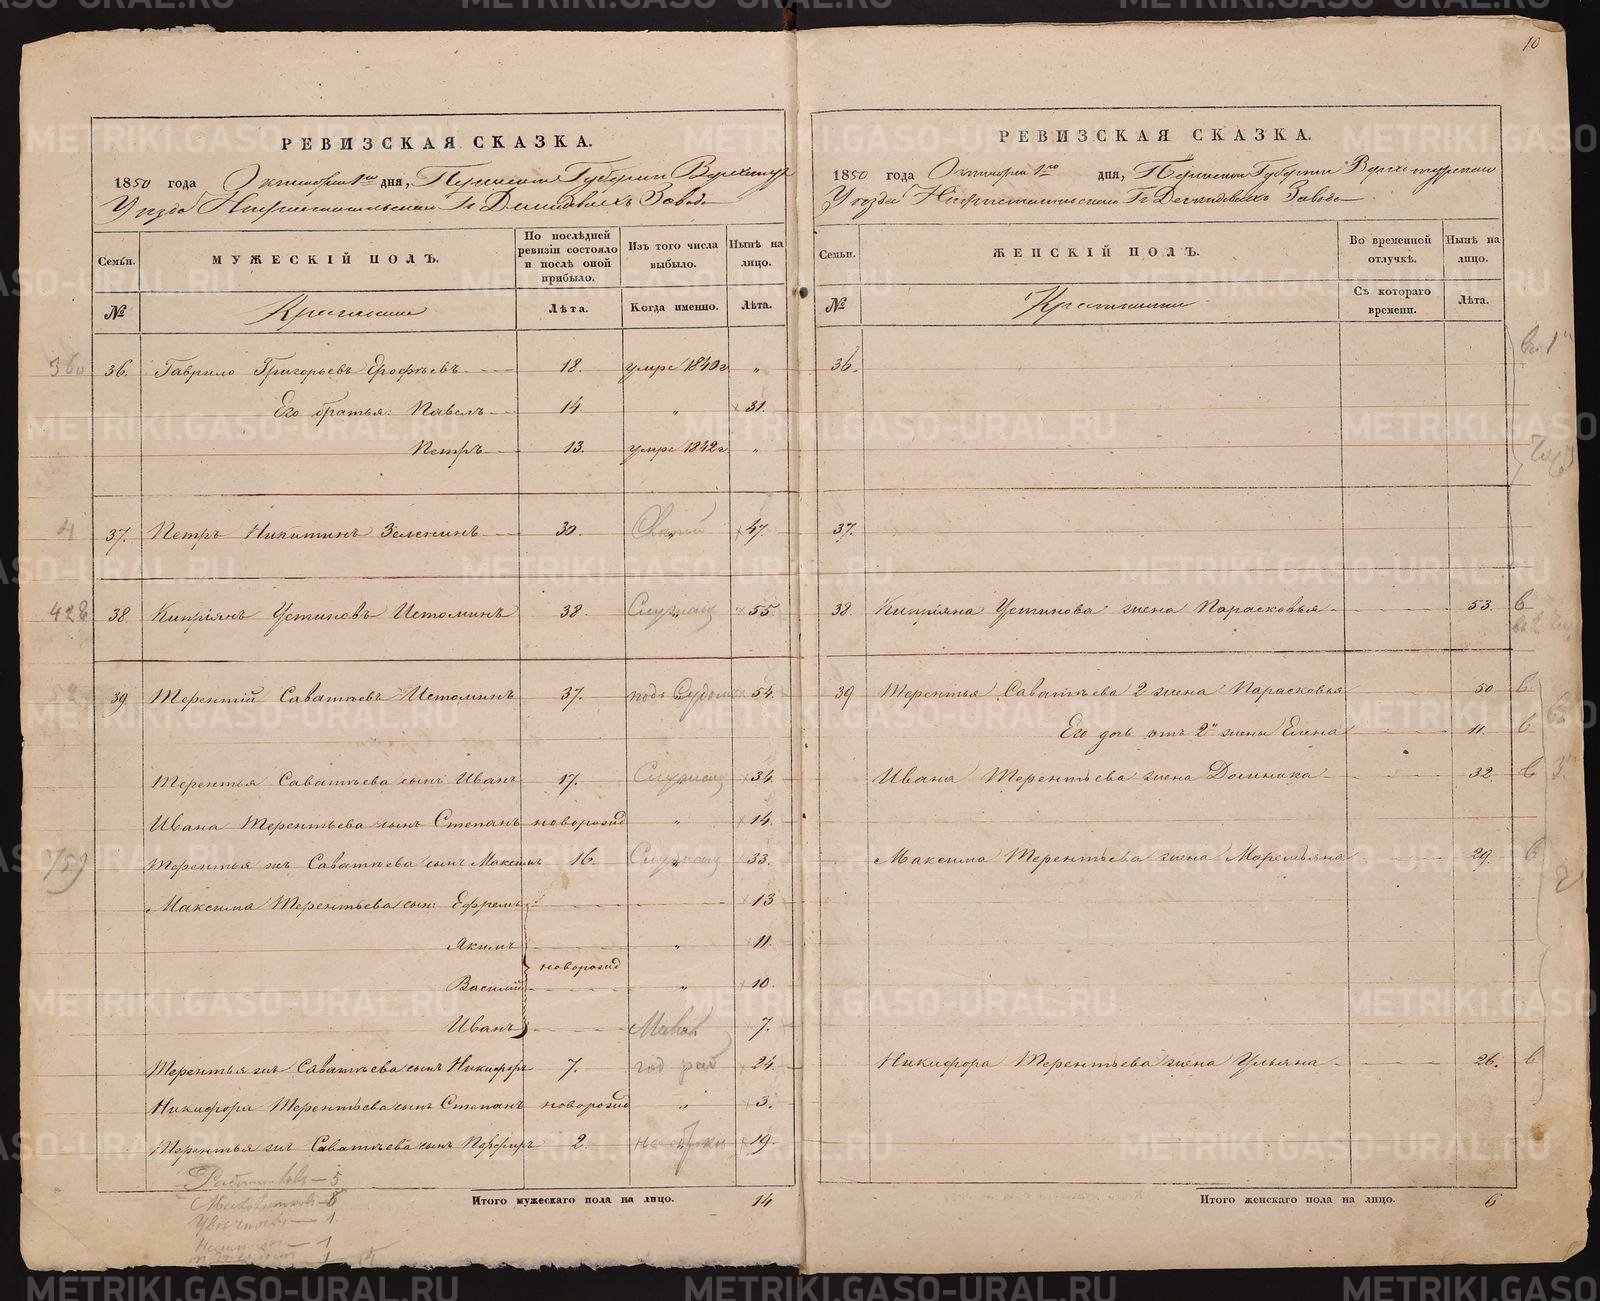 10
РЕВИЗСКАЯ СКАЗКА.
1850 года Октября 1го дня, Пермской Губерніи Верхотур
Уезда Нижнетагильскаго Гг Демидовыхъ Завода
Семьи.
МУЖЕСКІЙ ПОЛЪ.
По послѣдней ревизіи состояло и послѣ оной прибыло.
Изъ того числа выбыло.
Нынѣ на лицо.
№
Крестьяне
Лѣта.
Когда именно.
Лѣта.
36. Гаврило Григорьевъ Ерофѣевъ 18. умре 1840 г "
Его братья: Павелъ 14 " 31.
Петръ 13. умре 1842 г "
4 37. Петръ Никитинъ Зеленинъ 30. " 47.
428 38. Кипріянъ Устиновъ Истоминъ 38. " 55.
39 Терентій Саватѣевъ Истоминъ 37. подъ 54.
Терентья Саватѣева сынъ Иванъ 17. 34.
Ивана Терентьева сынъ Степанъ новорожд " 14.
759 Терентья жъ Саватѣева сынъ Максимъ 16. " 33.
Максима Терентьева сын: Ефремъ 13
Якимъ " 11.
новорожд
Василій " 10.
Иванъ 7.
Терентья жъ Саватѣева сынъ Никифоръ 7. год раб 24.
Никифора Терентьева сынъ Степанъ новорожд " 3.
Терентья жъ Саватѣева сынъ Порфиръ 2. 19.
Итого мужескаго пола на лицо. 14
Работниковъ — 5
— 8
— 1
— 1
— 1
РЕВИЗСКАЯ СКАЗКА.
1850 года Октября 1го дня, Пермской Губерніи Верхотурскаго
Уезда Нижнетагильскаго Гг Демидовыхъ Завода
Семьи.
ЖЕНСКІЙ ПОЛЪ.
Во временной отлучкѣ.
Нынѣ на лицо.
№
Крестьянки
Съ котораго времени.
Лѣта.
36.
37.
38. Кипріяна Устинова жена Парасковья 53. в
39 Терентья Саватѣева 2 жена Парасковья 50. в
Его дочь отъ 2й жены Елена 11. в
Ивана Терентьева жена Домника 32. в
Максима Терентьева жена Маремьяна 29. в
Никифора Терентьева жена Ульяна 26. в
Итого женскаго пола на лицо. 6
METRIKI.GASO-URAL.RU